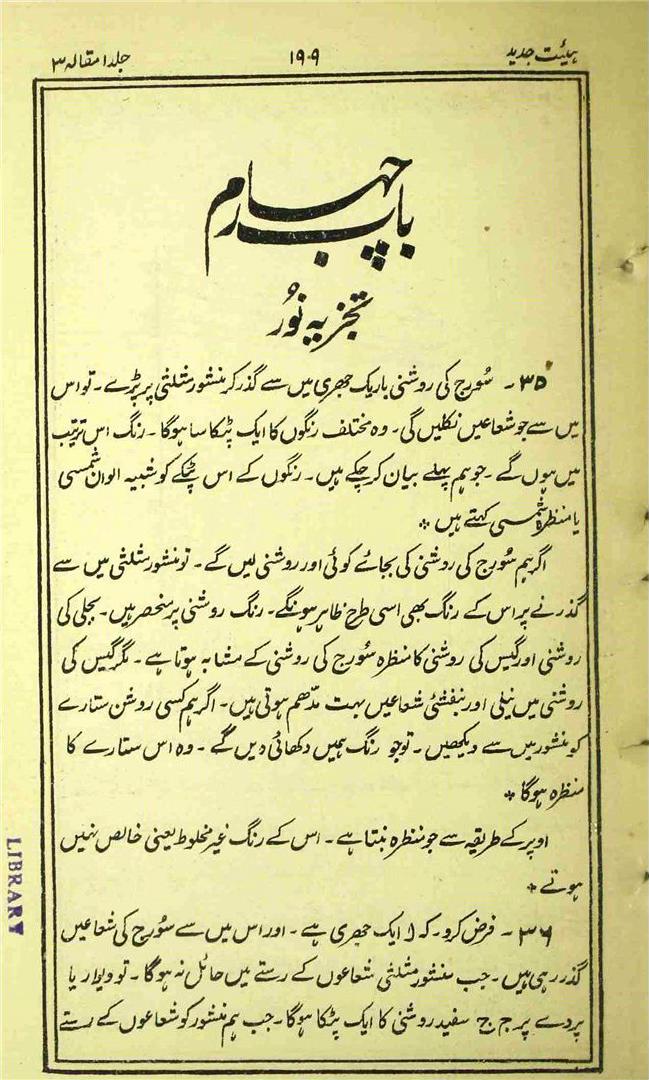 ہیئت جدید
۱۹۰۹
جلد ا مقالہ ۳
باب چہارم
تجزیہ نُور
۳۵ - سُورج کی روشنی باریک جھری میں سے گذر کر منشور مثلثی پر پڑے - تو اس
میں سے جو شعاعیں نکلیں گی - وہ مختلف رنگوں کا ایک پٹکا سا ہوگا - رنگ اس ترتیب
میں ہوں گے - جو ہم پہلے بیان کر چکے ہیں - رنگوں کے اس پٹکے کو شبیہ الوان شمسی
یا منظرہ شمسی کہتے ہیں *
اگر ہم سُورج کی روشنی کی بجائے کوئی اور روشنی لیں گے - تو منشور مثلثی میں سے
گذرنے پر اس کے رنگ بھی اسی طرح ظاہر ہونگے - رنگ روشنی پر منحصر ہیں - بجلی کی
روشنی اور گیس کی روشنی کا منظرہ سُورج کی روشنی کے مشابہ ہوتا ہے - مگر گیس کی
روشنی میں نیلی اور بنفشئی شعاعیں بہت مدّھم ہوتی ہیں - اگر ہم کسی روشن ستارے
کو منشور میں سے دیکھیں - تو جو رنگ ہمیں دکھائی دیں گے - وہ اس ستارے کا
منظرہ ہوگا *
اوپر کے طریقہ سے جو منظرہ بنتا ہے - اس کے رنگ غیر مخلوط یعنی خالص نہیں
ہوتے *
۳۶ - فرض کرو - کہ ا ایک جھری ہے - اور اس میں سے سُورج کی شعاعیں
گذر رہی ہیں - جب منشور مثلثی شعاعوں کے رستے میں حائل نہ ہوگا - تو دیوار یا
پردے پر ج ج سفید روشنی کا ایک پٹکا ہوگا - جب ہم منشور کو شعاعوں کے رستے
LIBRARY